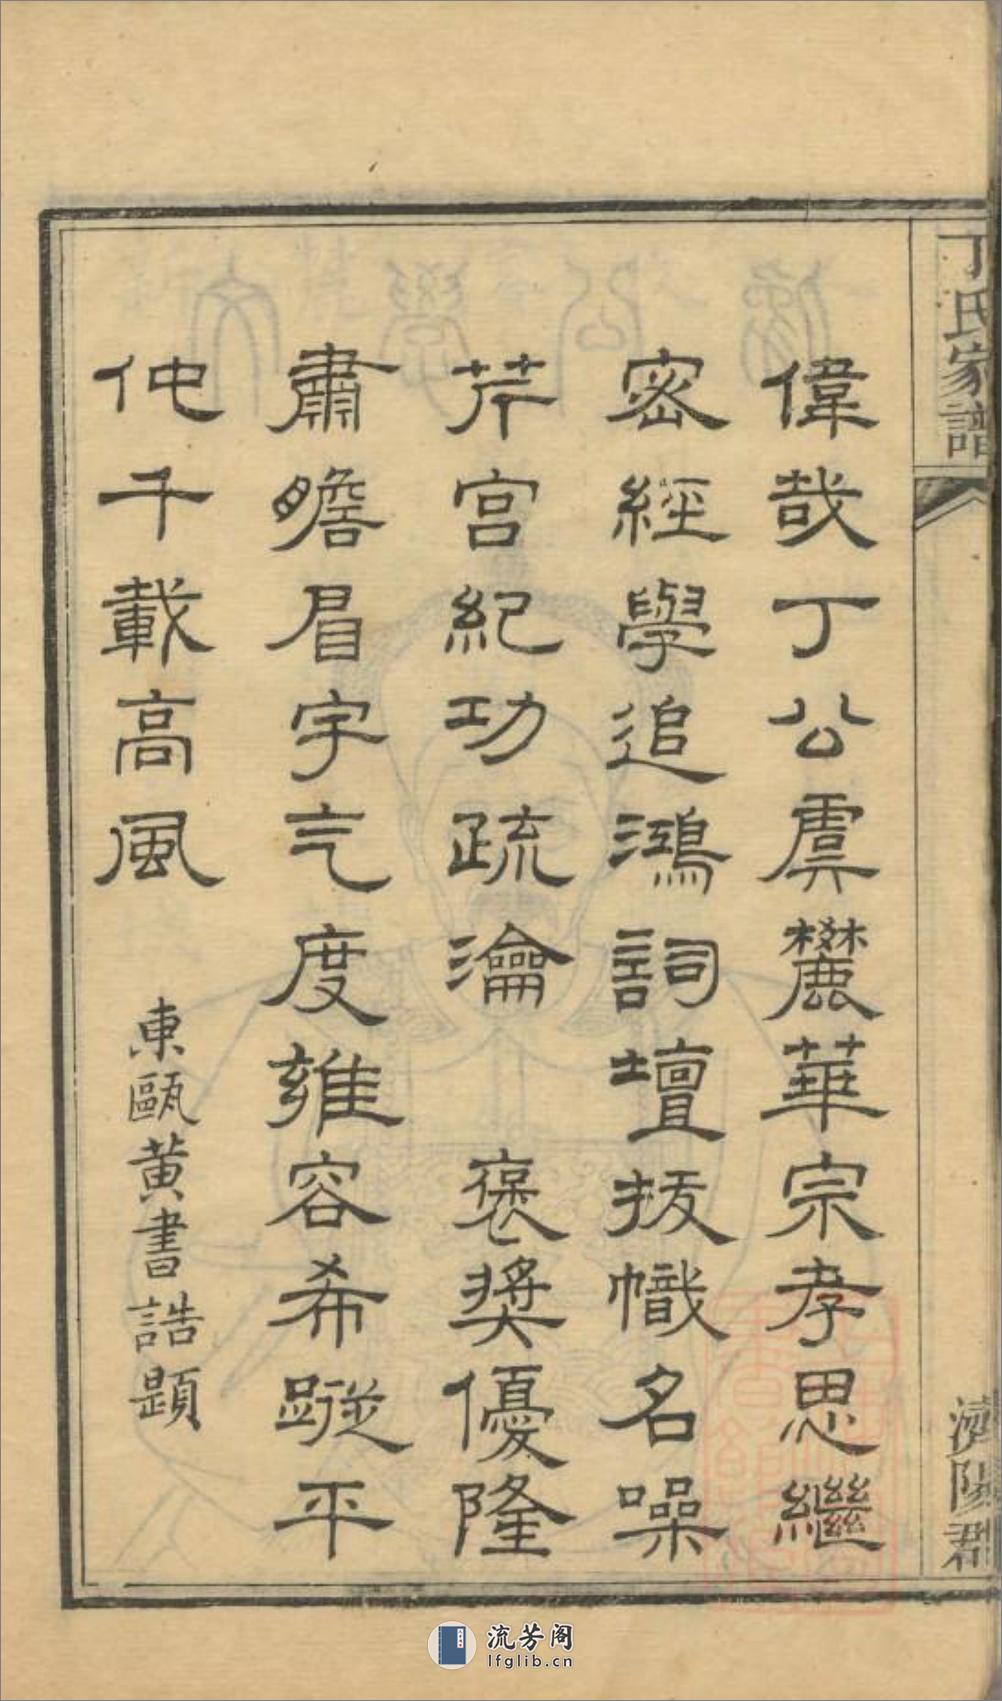 丁氏家譜
濟陽郡
偉哉丁公虞麓華宗孝思繼
密經學追鴻詞壇拔幟名噪
芹宮紀功疏瀹　褒奬優隆
肅瞻眉宇气度雍容希蹤平
仲千載高風
東甌黃書誥題
流芳阁
lfglib.cn